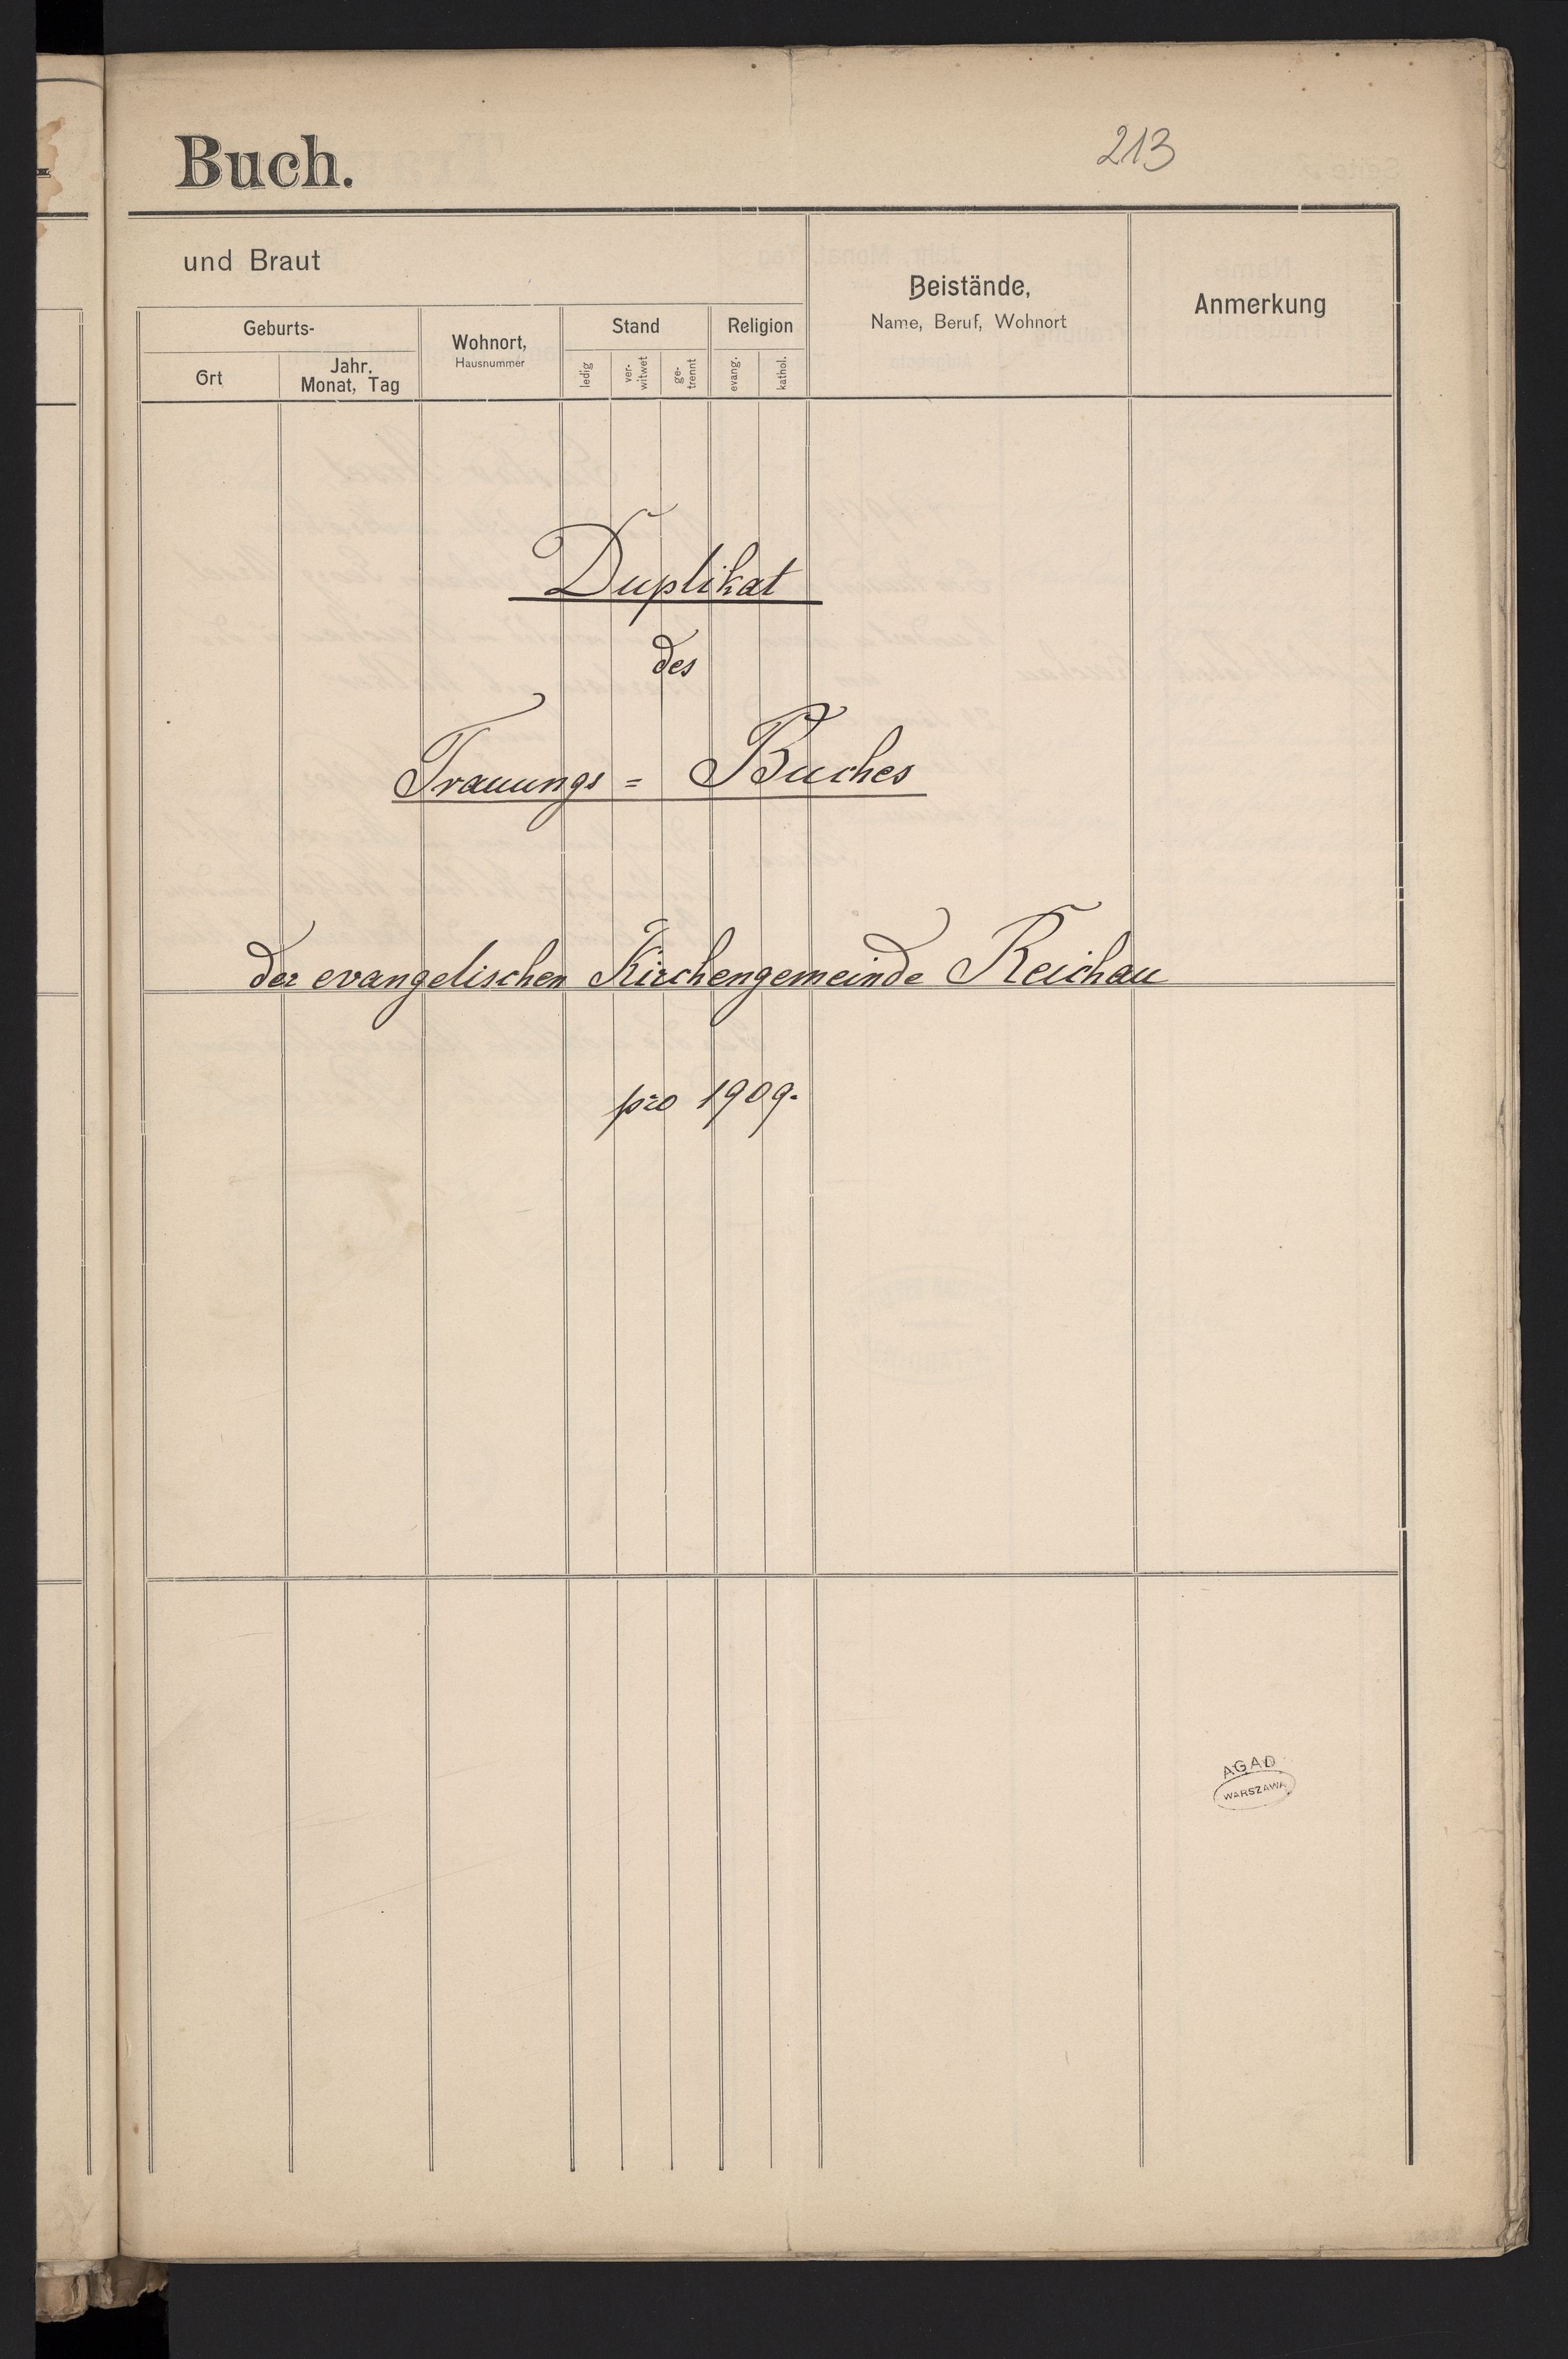 Buch.
213
und Braut
Beistände,
Name, Beruf, Wohnort
Anmerkung
Geburts-
Wohnort,
Hausnummer
Stand
Religion
Ort
Jahr,
Monat, Tag
ledig
ver-
witwet
ge-
trennt
evang.
kathol.
Duplikat
des
Trauungs = Buches
der evangelischen Kirchengemeinde Reichau
pro 1909.
AGAD
WARSZAWA